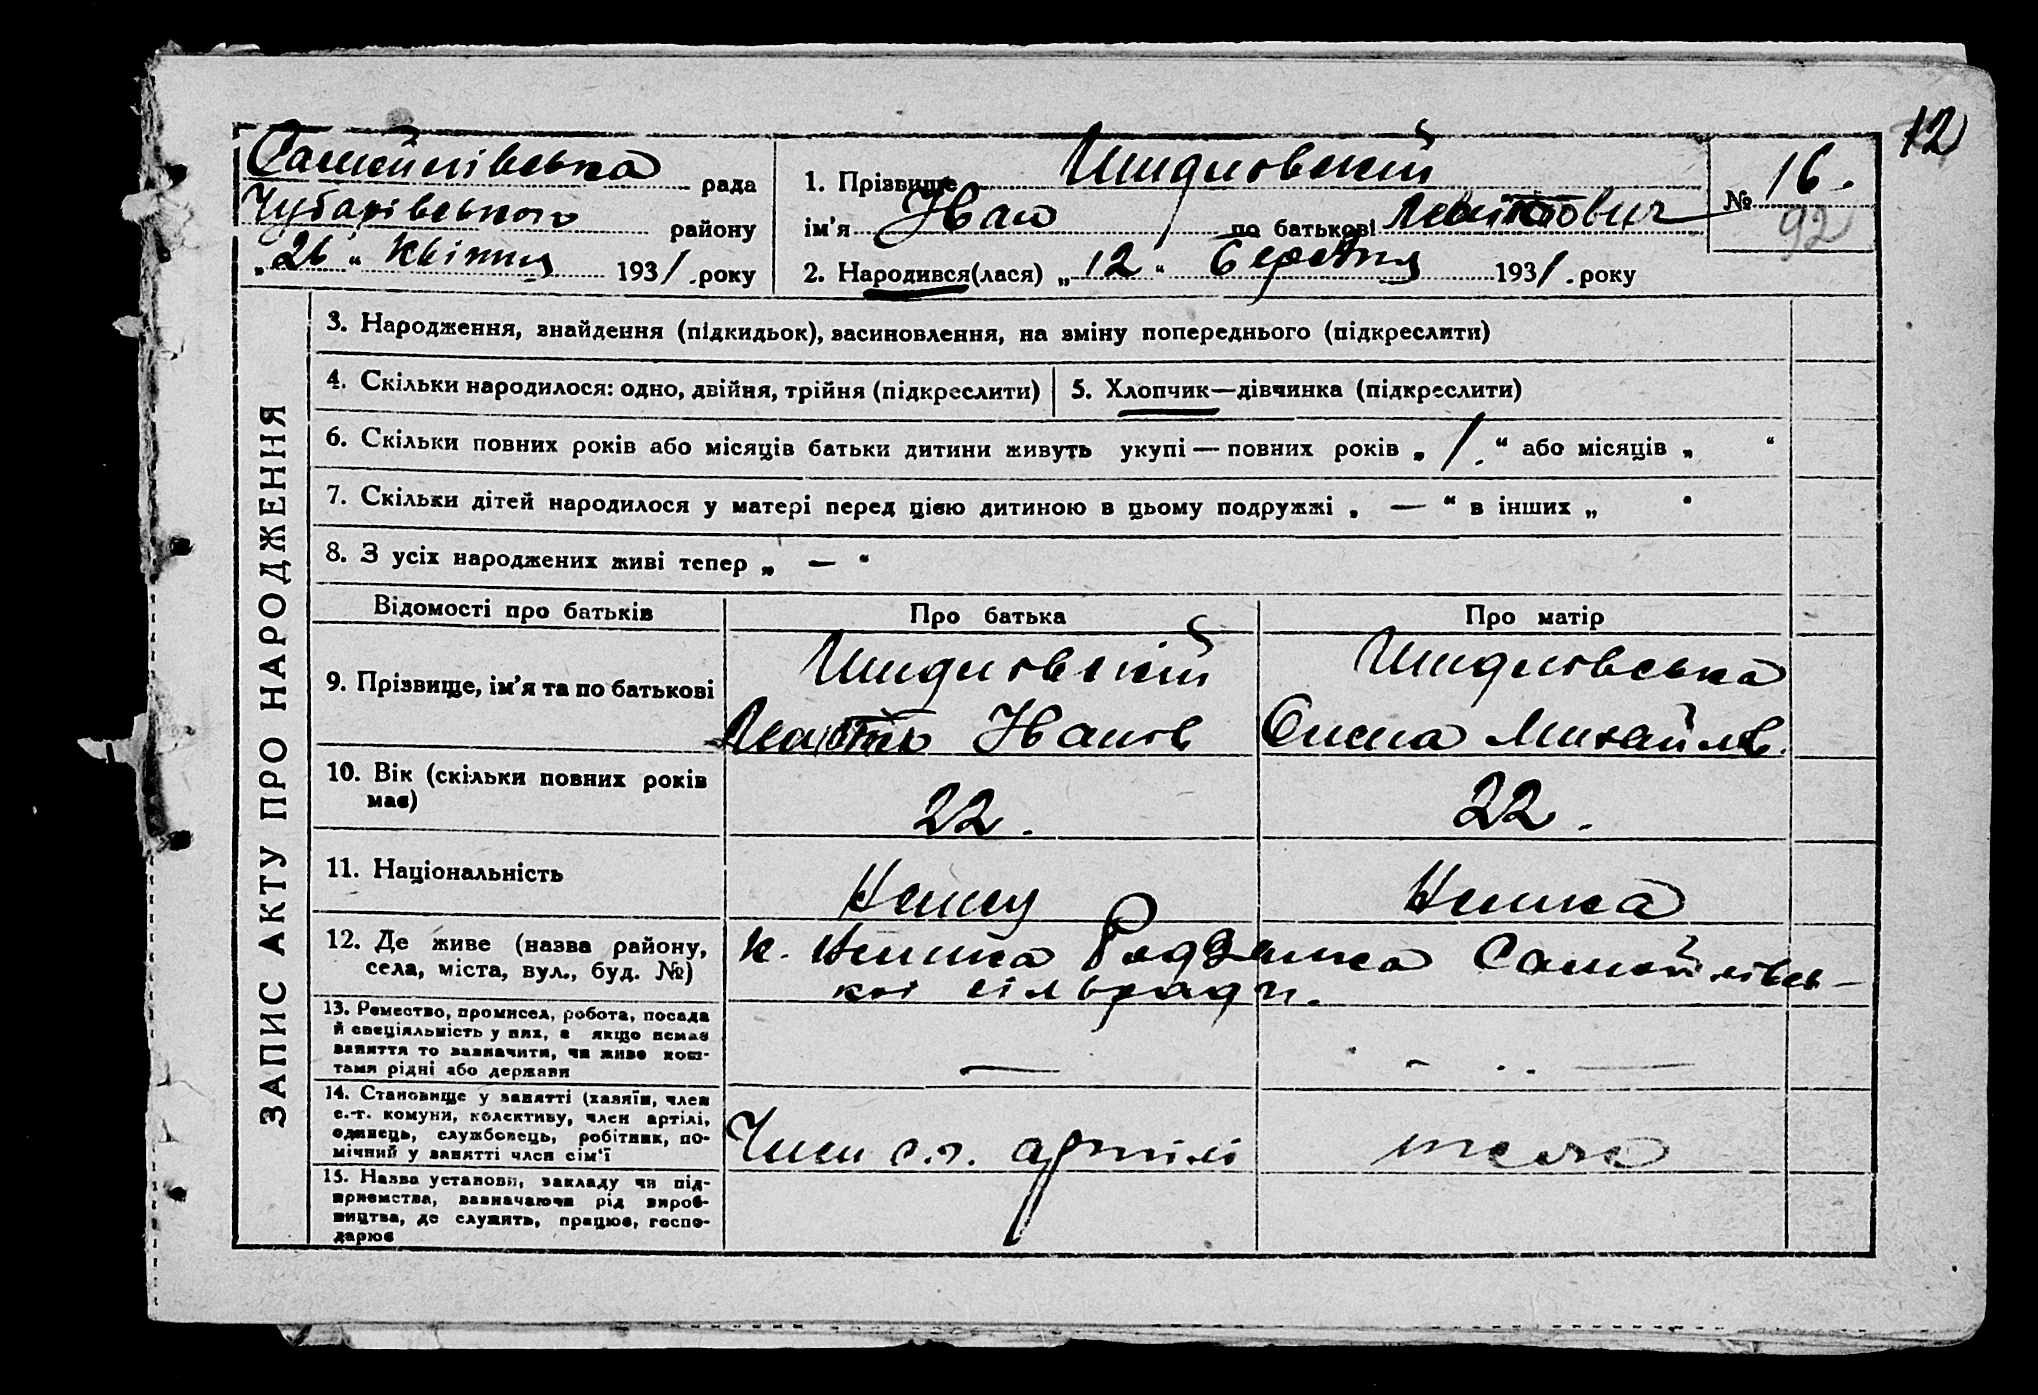 12
Самойлівська рада
Чубарівського району
„26“ Квітня 1931. року
1. Прізвище Шидловский
ім'я Іван по батькові
2. Народився(лася) „12“ Березня 1931. року
№ 16.
92
ЗАПИС АКТУ ПРО НАРОДЖЕННЯ
3. Народження, знайдення (підкидьок), засиновлення, на зміну попереднього (підкреслити)
4. Скільки народилося: одно, двійня, трійня (підкреслити)
5. Хлопчик—дівчинка (підкреслити)
6. Скільки повних років або місяців батьки дитини живуть укупі — повних років „1.“ або місяців „ “
7. Скільки дітей народилося у матері перед цією дитиною в цьому подружжі „ — “ в інших „ “
8. З усіх народжених живі тепер „ — “
Відомості про батьків
Про батька
Про матір
9. Прізвище, ім'я та по батькові
Шидловский
Іванов
Шидловська
Михайлов.
10. Вік (скільки повних років
має)
22.
22.
11. Національність
Немец
Немка
12. Де живе (назва району,
села, міста, вул., буд. №)
к. Самойлівсь-
кої сільради.
13. Ремество, промисел, робота, посада
й спеціяльність у них, а якщо немає
заняття то зазначити, чи живе кош-
тами рідні або держави
—
—
14. Становище у занятті (хазяїн, член
с.-г. комуни, колективу, член артілі,
одинець, службовець, робітник, по-
мічний у занятті член сім'ї
Член с.г. артілі
теж
15. Назва установи, закладу чи під-
приємства, зазначаючи рід вироб-
ництва, де служить, працює, госпо-
дарює